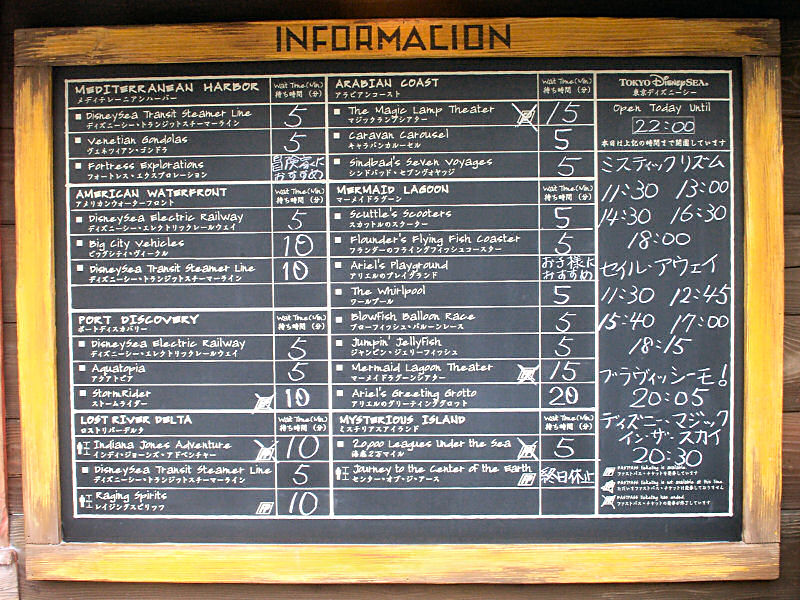 INFORMACION
MEDITERRANEAN HARBOR
メディテレーニアンハーバー
Wait Time(Min)
待ち時間 (分)
DisneySea Transit Steamer Line
ディズニーシー・トランジットスチーマーライン
5
Venetian Gondolas
ヴェネツィアン・ゴンドラ
5
Fortress Explorations
フォートレス・エクスプロレーション
冒険家に
おすすめ
AMERICAN WATERFRONT
アメリカンウォーターフロント
Wait Time(Min)
待ち時間 (分)
DisneySea Electric Railway
ディズニーシー・エレクトリックレールウェイ
5
Big City Vehicles
ビッグシティ・ヴィークル
10
DisneySea Transit Steamer Line
ディズニーシー・トランジットスチーマーライン
10
PORT DISCOVERY
ポートディスカバリー
Wait Time(Min)
待ち時間 (分)
DisneySea Electric Railway
ディズニーシー・エレクトリックレールウェイ
5
Aquatopia
アクアトピア
5
StormRider
ストームライダー
10
LOST RIVER DELTA
ロストリバーデルタ
Wait Time(Min)
待ち時間 (分)
Indiana Jones Adventure
インディ・ジョーンズ・アドベンチャー
10
DisneySea Transit Steamer Line
ディズニーシー・トランジットスチーマーライン
5
Raging Spirits
レイジングスピリッツ
10
ARABIAN COAST
アラビアンコースト
Wait Time(Min)
待ち時間 (分)
The Magic Lamp Theater
マジックランプシアター
15
Caravan Carousel
キャラバンカルーセル
5
Sindbad's Seven Voyages
シンドバッド・セブンヴォヤッジ
5
MERMAID LAGOON
マーメイドラグーン
Wait Time(Min)
待ち時間 (分)
Scuttle's Scooters
スカットルのスクーター
5
Flounder's Flying Fish Coaster
フランダーのフライングフィッシュコースター
5
Ariel's Playground
アリエルのプレイグラウンド
お子様に
おすすめ
The Whirlpool
ワールプール
5
Blowfish Balloon Race
ブローフィッシュ・バルーンレース
5
Jumpin' Jellyfish
ジャンピン・ジェリーフィッシュ
5
Mermaid Lagoon Theater
マーメイドラグーンシアター
15
Ariel's Greeting Grotto
アリエルのグリーティンググロット
20
MYSTERIOUS ISLAND
ミステリアスアイランド
Wait Time(Min)
待ち時間 (分)
20,000 Leagues Under the Sea
海底2万マイル
5
Journey to the Center of the Earth
センター・オブ・ジ・アース
終日休止
TOKYO DisneySEA
東京ディズニーシー
Open Today Until
22:00
本日は上記の時間まで開園しています
ミスティックリズム
11:30 13:00
14:30 16:30
18:00
セイル・アウェイ
11:30 12:45
15:40 17:00
18:15
ブラヴィッシーモ!
20:05
ディズニー・マジック
イン・ザ・スカイ
20:30
FASTPASS ticketing is available.
ファストパス・チケットを発券しています
FASTPASS ticketing is not available at this time.
ただいまファストパス・チケットは発券しておりません
FASTPASS ticketing has ended.
ファストパス・チケットの発券が終了しています